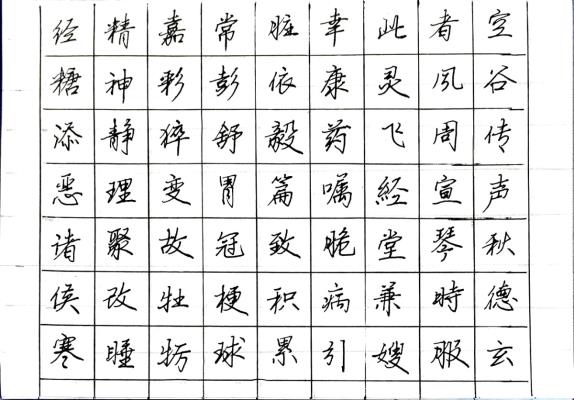 空谷传声秋德玄
者风周宣琴時服
此灵飞經堂兼嫂
幸康药嘱脆病引
脏依毅篇致积累
常彭舒胃冠梗球
嘉彩猝变故牡
精神静理聚改睡
经糖添恶诸侯寒